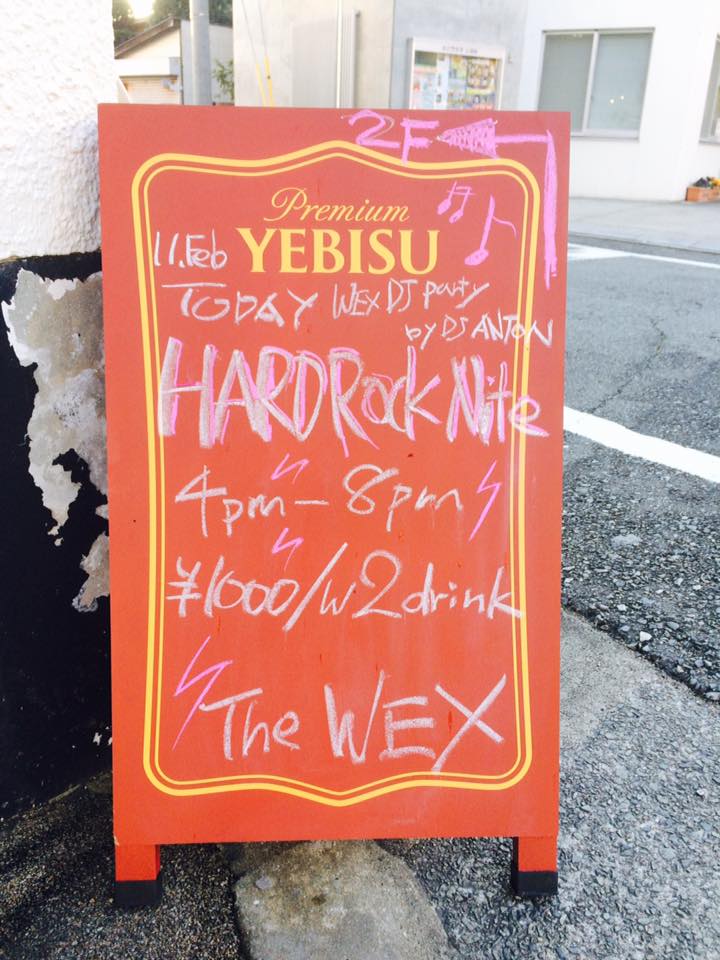 2F
Premium
YEBISU
11.Feb
TODAY WEX DJ party
by DJ ANTON
HARDRock Nite
4pm - 8pm
¥1000/w 2drink
The WEX